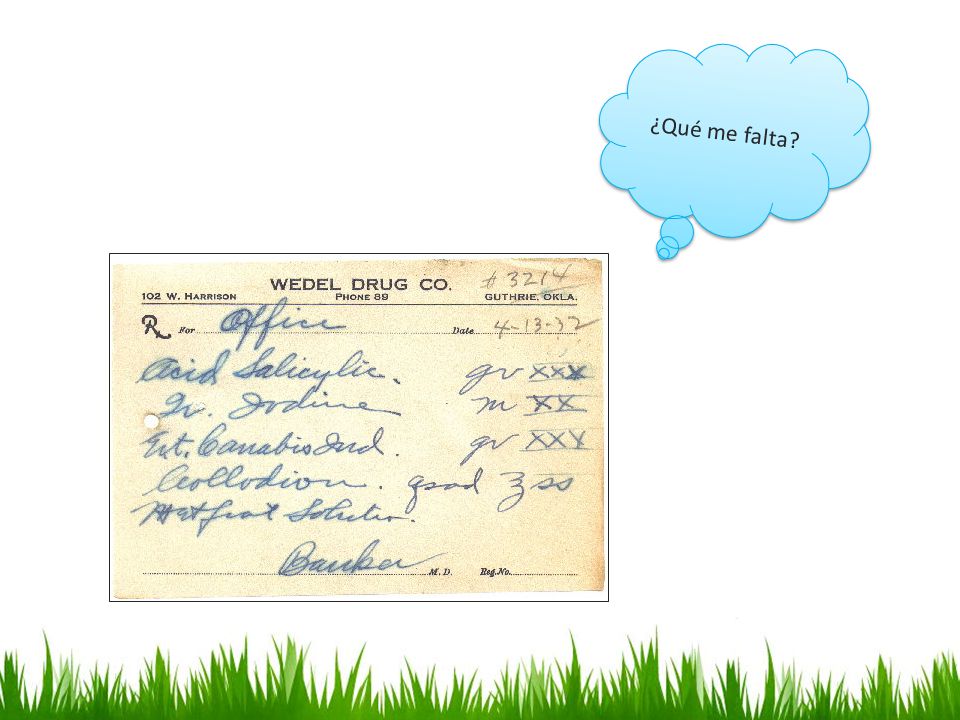 ¿Qué me falta?
WEDEL DRUG CO. # 3214
102 W. HARRISON PHONE 89 GUTHRIE, OKLA.
For Office Date 4-13-32
Acid Salicylic. gr XXX
Tr. Iodine m XX
Ext. Canabis Ind. gr XXX
Collodion. qsad ℥ ss
Solution.
Banker M.D. Reg.No.